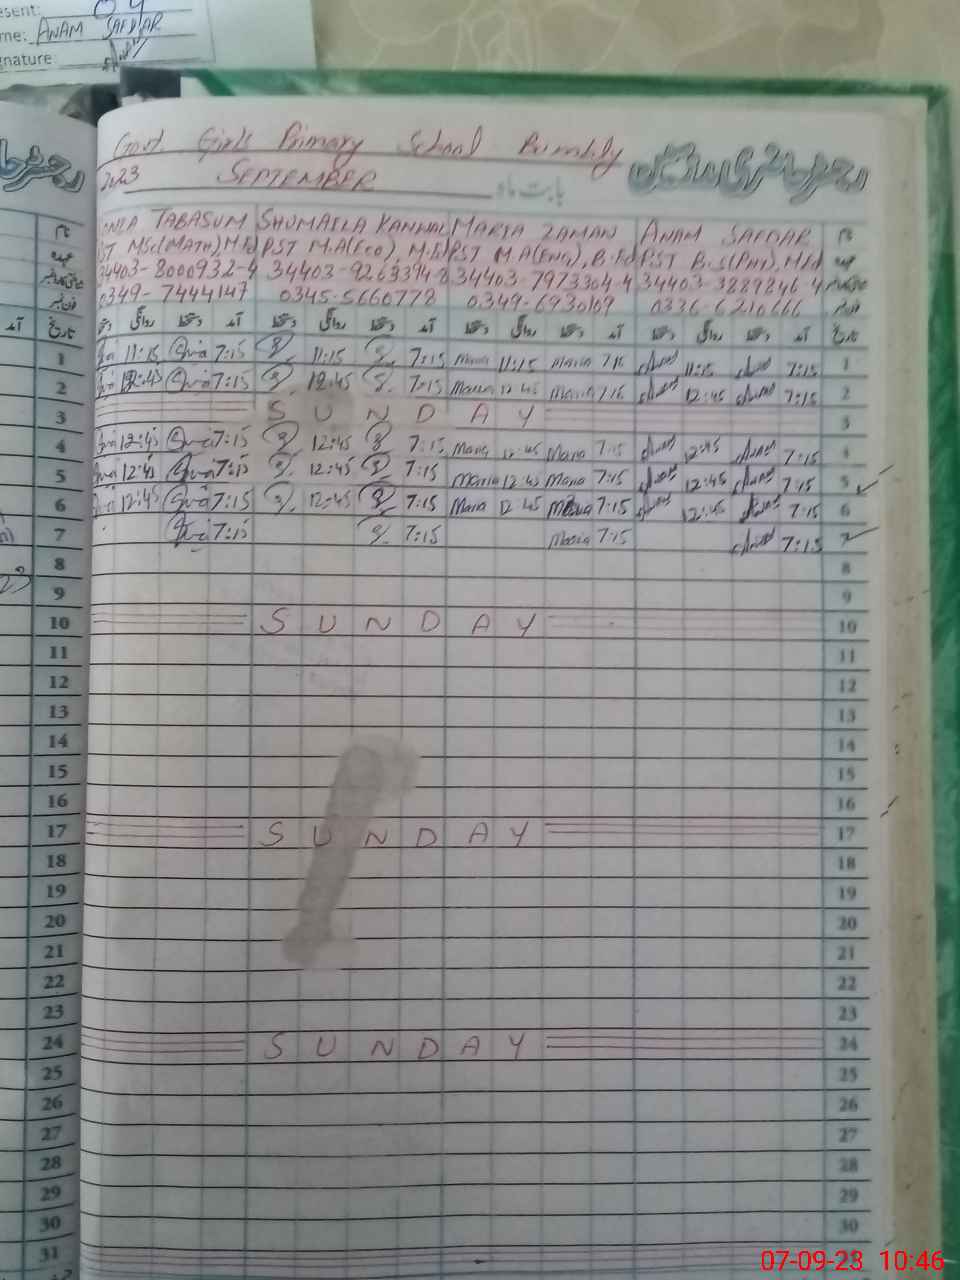 esent: 04
me: ANAM SAFDAR
gnature:
Govt Girls Primary School
رجسٹر حاضری مدرسین
2023 SEPTEMBER بابت ماہ
TABASUM SHUMAILA KANWAL MARIA ZAMAN ANAM SAFDAR نام
ST MSc(MATH), M.Ed PST M.A(Eco), M.Ed PST M.A(ENG), B.Ed PST B.S(PHY), M.Ed عہدہ
34403-8000932-4 34403-9263394-8 34403-7973304-4 34403-3889846-4
0349-7444147 0345-5660778 0349-6930109 0336-6210666 فون نمبر
روانگی دستخط آمد دستخط روانگی دستخط آمد دستخط روانگی دستخط آمد دستخط روانگی دستخط آمد تاریخ
1 11:15 7:15 11:15 7:15 Maria 11:15 Maria 7:15 11:15 7:15 1
2 12:45 7:15 12:45 7:15 Maria 12:45 Maria 7:15 12:45 7:15 2
3 SUNDAY 3
4 12:45 7:15 12:45 7:15 Maria 12:45 Maria 7:15 12:45 7:15 4
5 12:45 7:15 12:45 7:15 Maria 12:45 Maria 7:15 12:45 7:15 5
6 12:45 7:15 12:45 7:15 Maria 12:45 Maria 7:15 12:45 7:15 6
7 7:15 7:15 Maria 7:15 7:15 7
8 8
9 9
10 SUNDAY 10
11 11
12 12
13 13
14 14
15 15
16 16
17 SUNDAY 17
18 18
19 19
20 20
21 21
22 22
23 23
24 SUNDAY 24
25 25
26 26
27 27
28 28
29 29
30 30
31
07-09-23 10:46